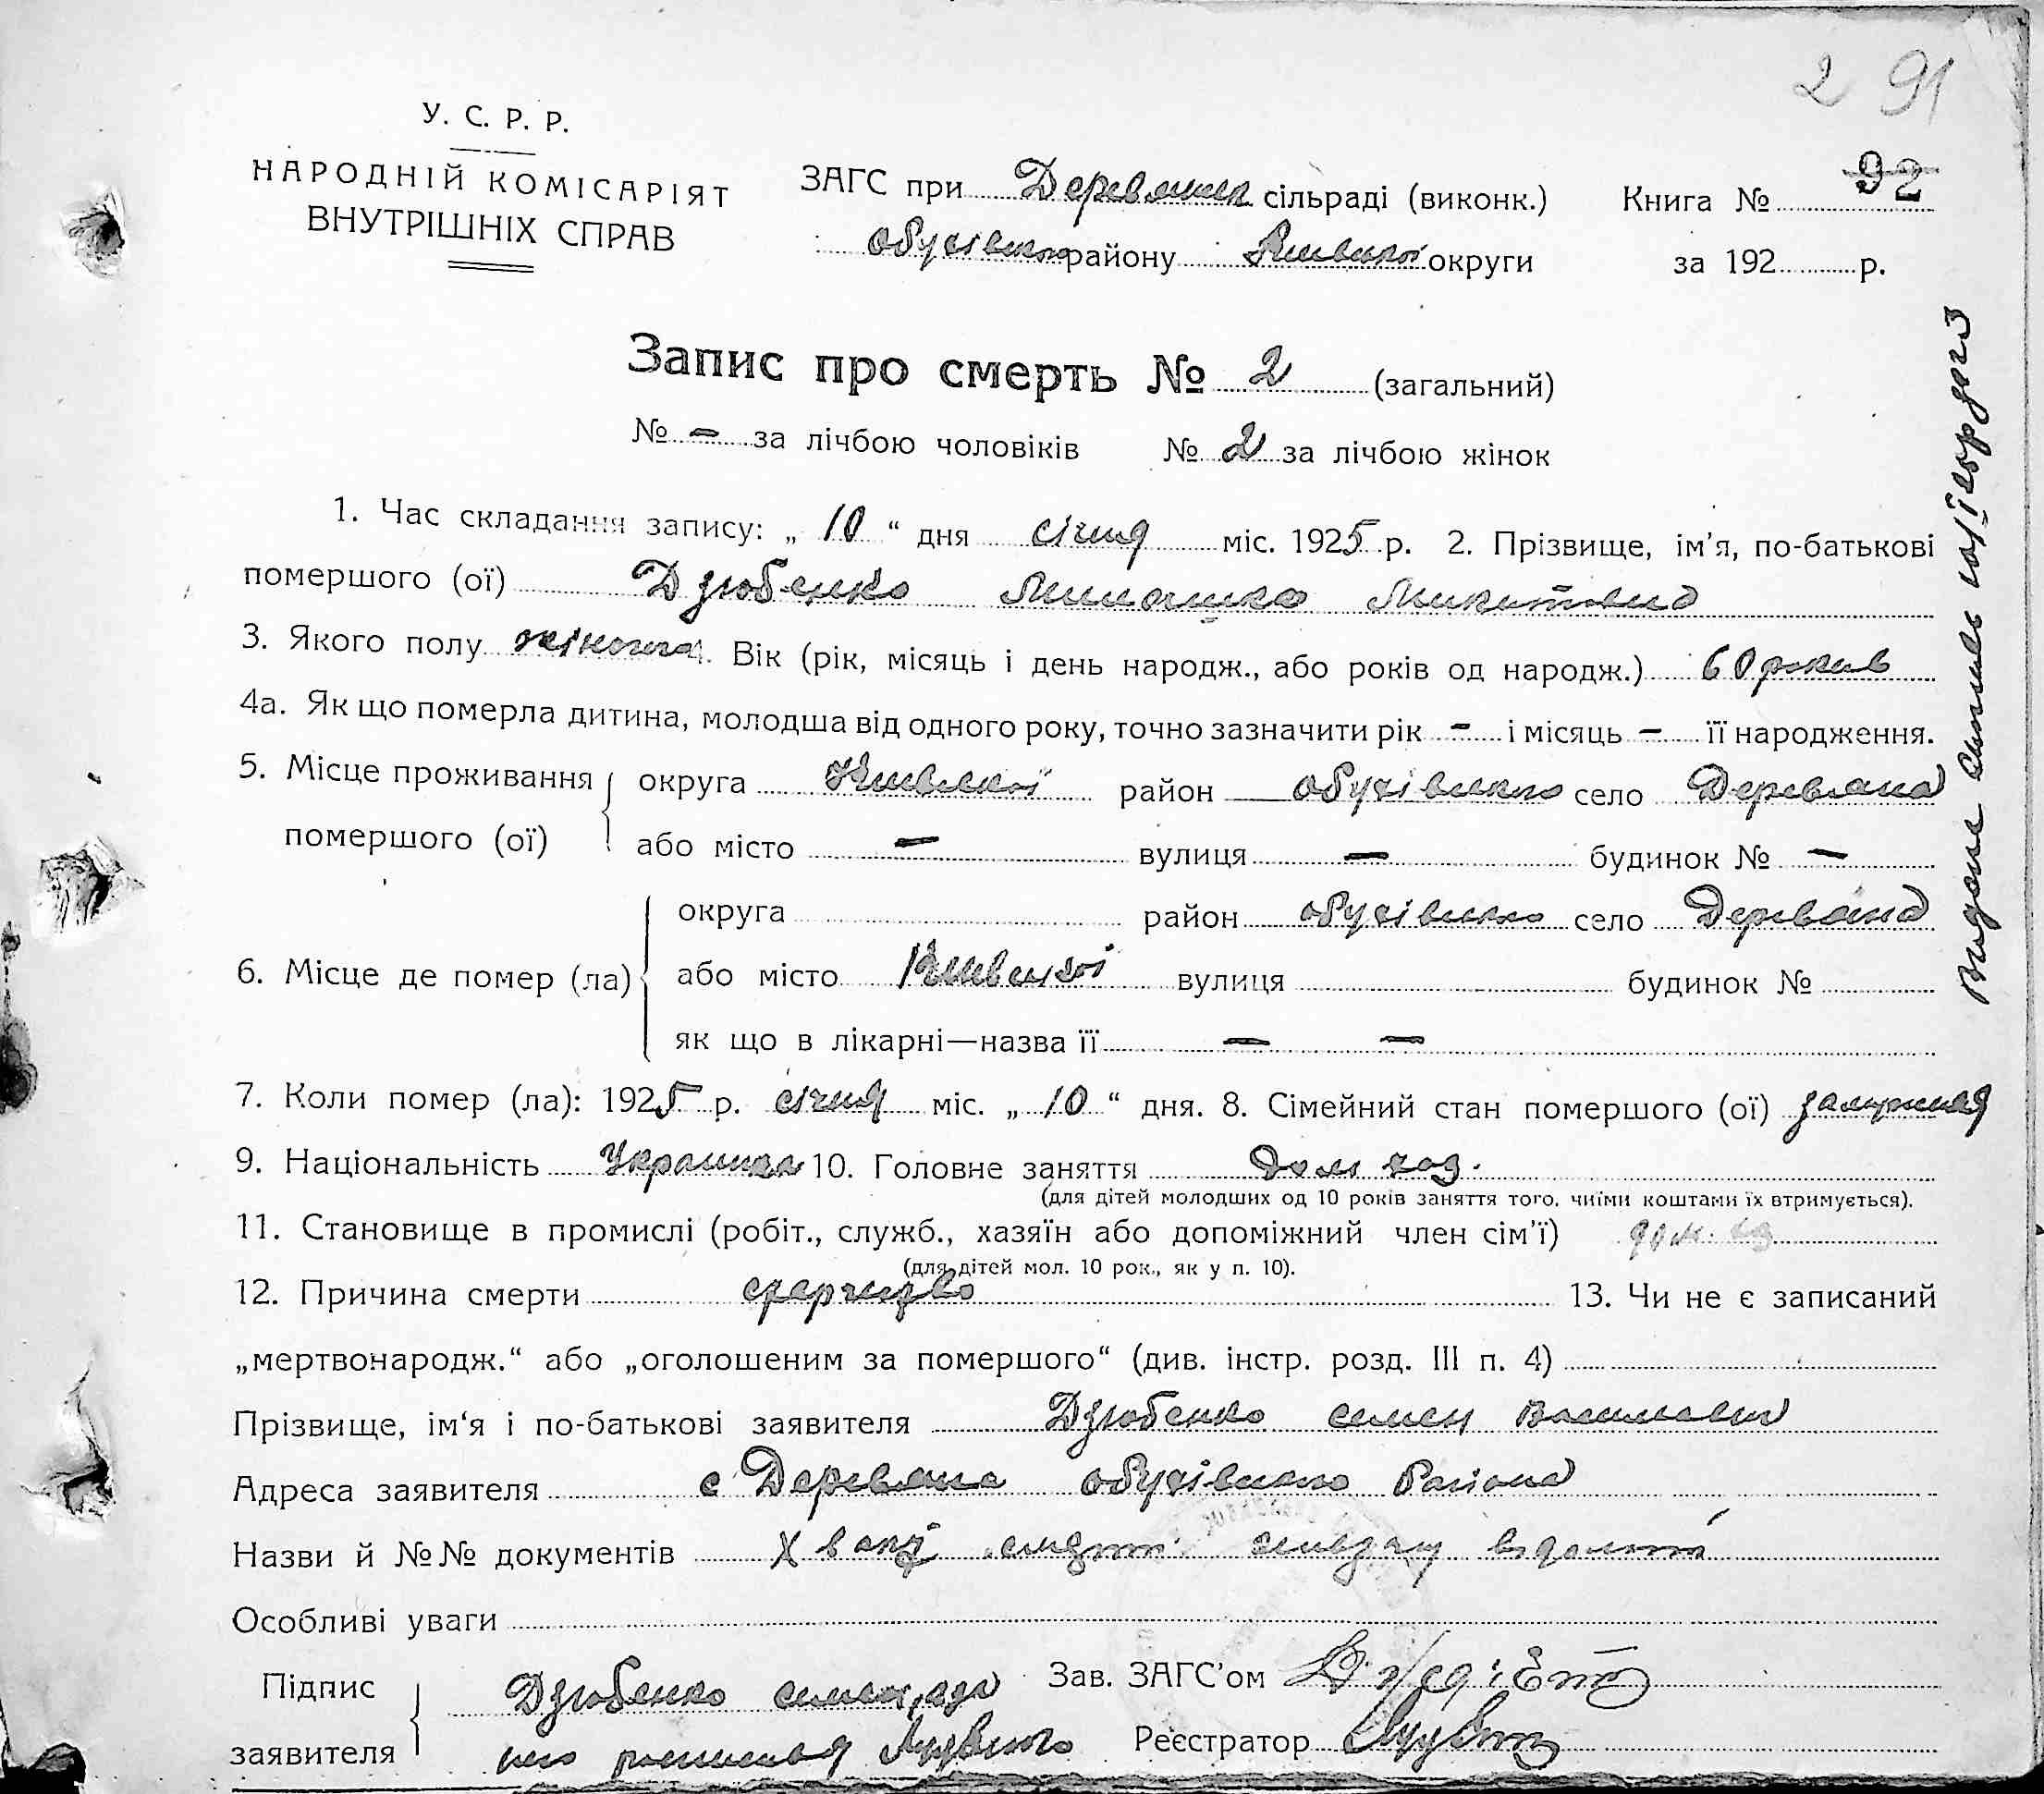 2 91
У. С. Р. Р.
НАРОДНІЙ КОМІСАРІЯТ
ВНУТРІШНІХ СПРАВ
ЗАГС при Деревянск сільраді (виконк.)
Обухівського району Київської округи
Книга № 92
за 192 р.
Запис про смерть № 2 (загальний)
№ – за лічбою чоловіків № 2 за лічбою жінок
1. Час складання запису: „ 10 “ дня січня міс. 1925 р. 2. Прізвище, ім’я, по-батькові
помершого (ої) Дзюбенко
3. Якого полу жіноча. Вік (рік, місяць і день народж., або років од народж.) 60 років
4а. Як що померла дитина, молодша від одного року, точно зазначити рік – і місяць – її народження.
5. Місце проживання округа Київської район Обухівського село Деревяна
помершого (ої) або місто – вулиця – будинок № –
округа район Обухівського село Деревяна
6. Місце де помер (ла) або місто Київської вулиця будинок №
як що в лікарні—назва її – –
7. Коли помер (ла): 1925 р. січня міс. „ 10 “ дня. 8. Сімейний стан помершого (ої) замужняя
9. Національність Украинка 10. Головне заняття Дом хоз.
(для дітей молодших од 10 років заняття того, чиїми коштами їх втримується).
11. Становище в промислі (робіт., служб., хазяїн або допоміжний член сім’ї) дом. хоз
(для дітей мол. 10 рок., як у п. 10).
12. Причина смерти 13. Чи не є записаний
„мертвонародж.“ або „оголошеним за помершого“ (див. інстр. розд. III п. 4)
Прізвище, ім‘я і по-батькові заявителя Дзюбенко Семен Васильевич
Адреса заявителя с Деревяна Обухівського Району
Назви й №№ документів
Особливі уваги
Підпис Дзюбенко Семен, а за Зав. ЗАГС’ом
заявителя Реєстратор